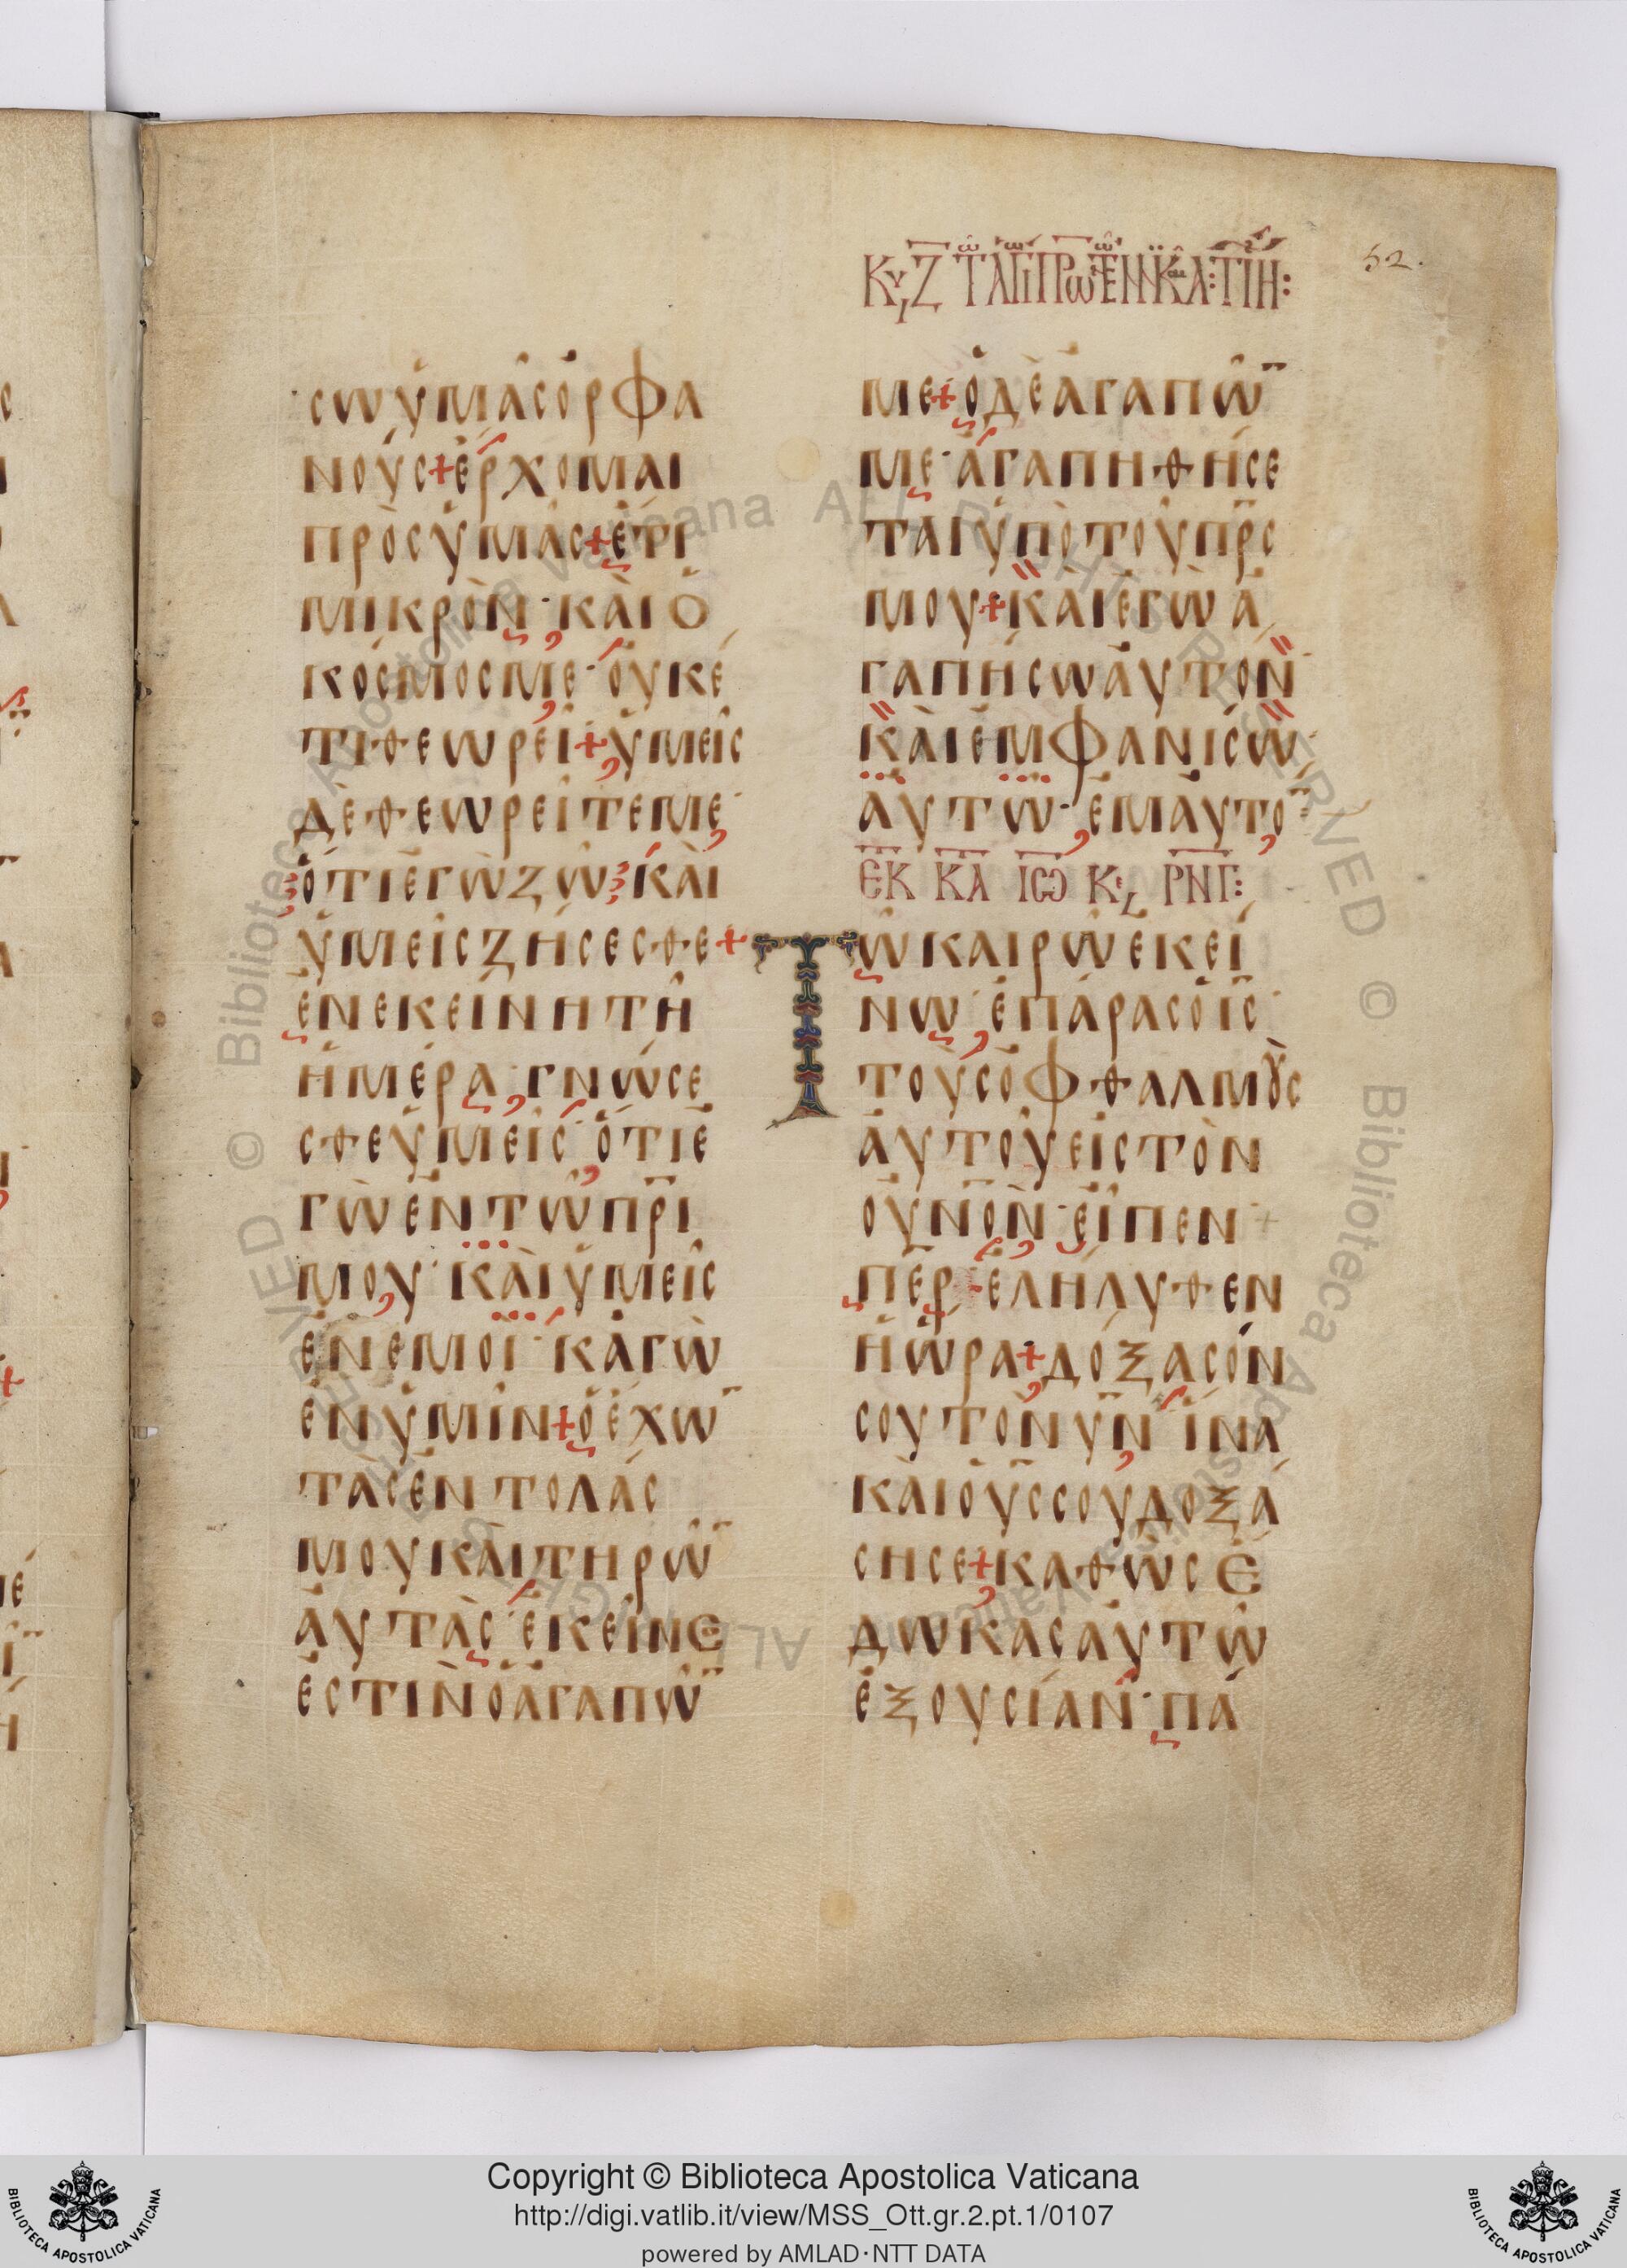 Κυ Ζ ΤΩΝ ΑΓΙ ΠΡΩΝ ΤΩΝ ΕΝ ΝΙΚΑΙΑ: ΤΙΗ:
52.
σω ὑμᾶς ὀρφα
νούς + ἔρχομαι
πρὸς ὑμᾶς + ἔτι
μικρὸν· καὶ ὁ
κόσμος με· οὐκέ
τι θεωρεῖ + ὑμεῖς
δὲ θεωρεῖτε με·
ὅτι ἐγὼ ζῶ· καὶ
ὑμεῖς ζήσεσθε +
ἐν ἐκείνη τῆ
ἡμέρα· γνώσε
σθε ὑμεῖς· ὅτι ἐ
γὼ ἐν τῶ πρι
μου· καὶ ὑμεῖς
ἐν ἐμοί· κἀγὼ
ἐν ὑμῖν + ὁ ἔχω¯
τὰς ἐντολάς
μου καὶ τηρῶ¯
αὐτὰς· ἐκεῖνε
ἐστὶν ὁ ἀγαπῶ¯
με + ὁ δὲ ἀγαπῶ¯
με· ἀγαπηθήσε
ται ὑπὸ τοῦ πρς
μου + καὶ ἐγὼ ἀ
γαπήσω αὐτὸν·
καὶ ἐμφανίσω
αὐτῶ· ἐμαυτό¯
ΕΚ ΚΑ ΙΩ Κε ΡΝΓ:
Τῶ καιρῶ ἐκεί
νω· ἐπάρας ὁ ις
τοὺς ὀφθαλμοὺς
αὐτοῦ εἰς τὸν
οὐνὸν· εἶπεν +
περ· ἐλήλυθεν
ἡ ὥρα + δόξασόν
σου τὸν υν· ἵνα
καὶ ὁ υς σου δοξά
ση σε + καθὼς ἔ
δωκας αὐτῶ
ἐξουσίαν· πά
Copyright © Biblioteca Apostolica Vaticana
http://digi.vatlib.it/view/MSS_Ott.gr.2.pt.1/0107
powered by AMLAD·NTT DATA
BIBLIOTECA APOSTOLICA VATICANA
BIBLIOTECA APOSTOLICA VATICANA